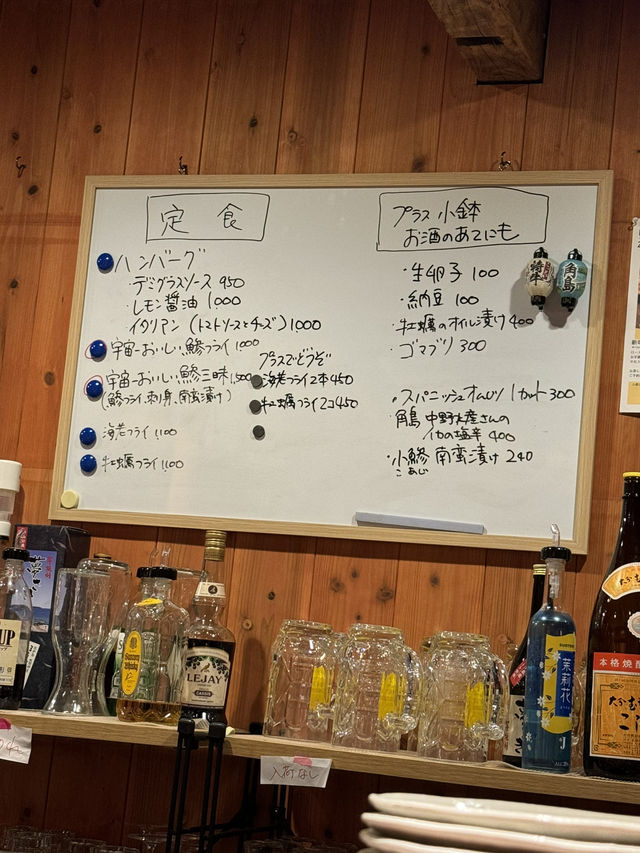 定食
ハンバーグ
・デミグラスソース 950
・レモン醤油 1,000
・イタリアン(トマトソースとチーズ)1000
宇宙一おいしい鯵フライ 1,000
宇宙一おいしい鯵三昧 1,500
(鯵フライ、刺身、南蛮漬け)
海老フライ 1,100
牡蠣フライ 1,100
プラスでどうぞ
海老フライ2本 450
牡蠣フライ2コ 450
プラス小鉢
お酒のあてにも
・生卵子 100
・納豆 100
・牡蠣のオイル漬け 400
・ゴマブリ 300
・スパニッシュオムレツ 1カット 300
・角島 中野水産さんの
イカの塩辛 400
・小鯵 南蛮漬け 240
こあじ
特牛
角島
LEJAY
CASSIS
入荷なし
茉莉花
SUNTORY
本格焼酎